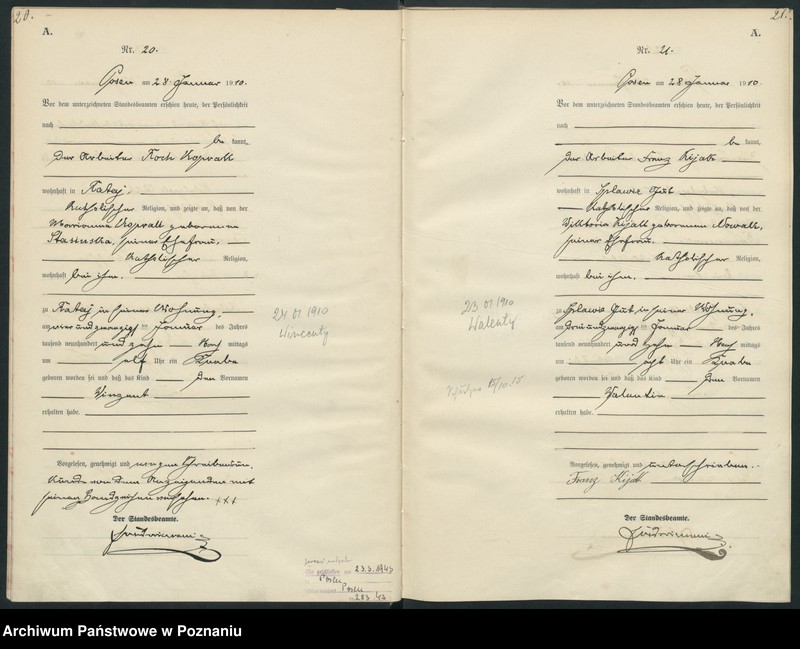 20.
A.
Nr. 20.
Posen am 28 Januar 1910.
Vor dem unterzeichneten Standesbeamten erschien heute, der Persönlichkeit
nach
be kannt,
der Arbeiter Roch
wohnhaft in Rataj,
katholischer Religion, und zeigte an, daß von der
Marianna geborenen
seiner Ehefrau,
katholischer Religion,
wohnhaft bei ihm,
zu Rataj in seiner Wohnung,
am vier und zwanzigsten Januar des Jahres
tausend neunhundert und zehn Nach mittags
um elf Uhr ein Knabe
geboren worden sei und daß das Kind den Vornamen
Vinzent
erhalten habe.
Vorgelesen, genehmigt und wegen Schreibensun-
kunde von dem Anzeigenden mit
seinen Handzeichen versehen. +++
Der Standesbeamte.
24 01 1910
Wincenty
23.3.1943
Posen
Posen
283 43
21.
A.
Nr. 21.
Posen am 28 Januar 1910
Vor dem unterzeichneten Standesbeamten erschien heute, der Persönlichkeit
nach
be kannt,
der Arbeiter Franz Kijak
wohnhaft in Gut
katholischer Religion, und zeigte an, daß von der
Viktoria Kijak geborenen Nowak,
seiner Ehefrau,
katholischer Religion,
wohnhaft bei ihm,
zu Gut in seiner Wohnung,
am drei und zwanzigsten Januar des Jahres
tausend neunhundert und zehn Nach mittags
um acht Uhr ein Knabe
geboren worden sei und daß das Kind den Vornamen
Valentin
erhalten habe.
Vorgelesen, genehmigt und unterschrieben.
Franz Kijak
Der Standesbeamte.
23 01 1910
Walenty
Archiwum Państwowe w Poznaniu